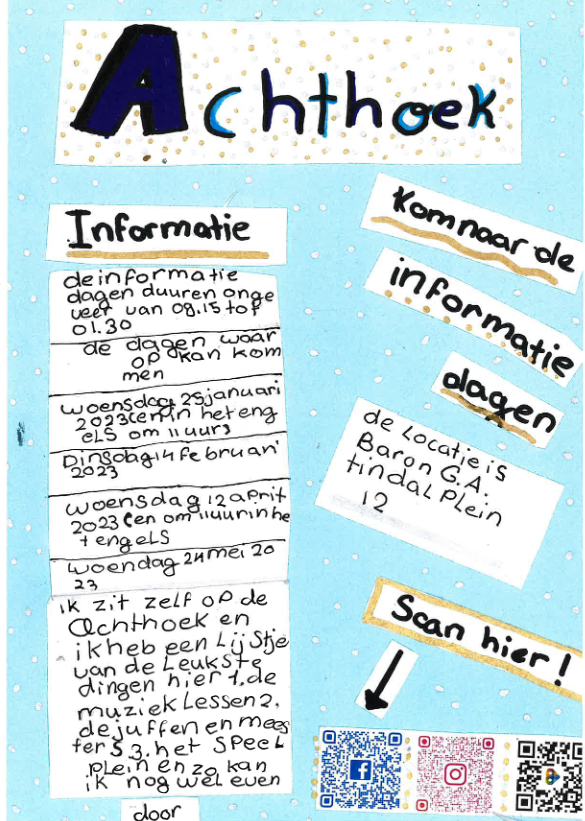 Achthoek
Informatie
de informatie
dagen duuren onge
veer van 09.15 tot
01.30
de dagen waar
op kan kom
men
woensdag 25 januari
2023 (en in het eng
els om 11 uur)
Dinsdag 14 februari
2023
woensdag 12 april
2023 (en om 11 uur in he
t engels
woendag 24 mei 20
23
ik zit zelf op de
Achthoek en
ik heb een Lijstje
van de Leukste
dingen hier 1. de
muziek Lessen 2.
de juffen en mees
ters 3. het speel
plein en zo kan
ik nog wel even
door
Kom naar de
informatie
dagen
de Locatie is
Baron G.A.
tindal plein
12
Scan hier!